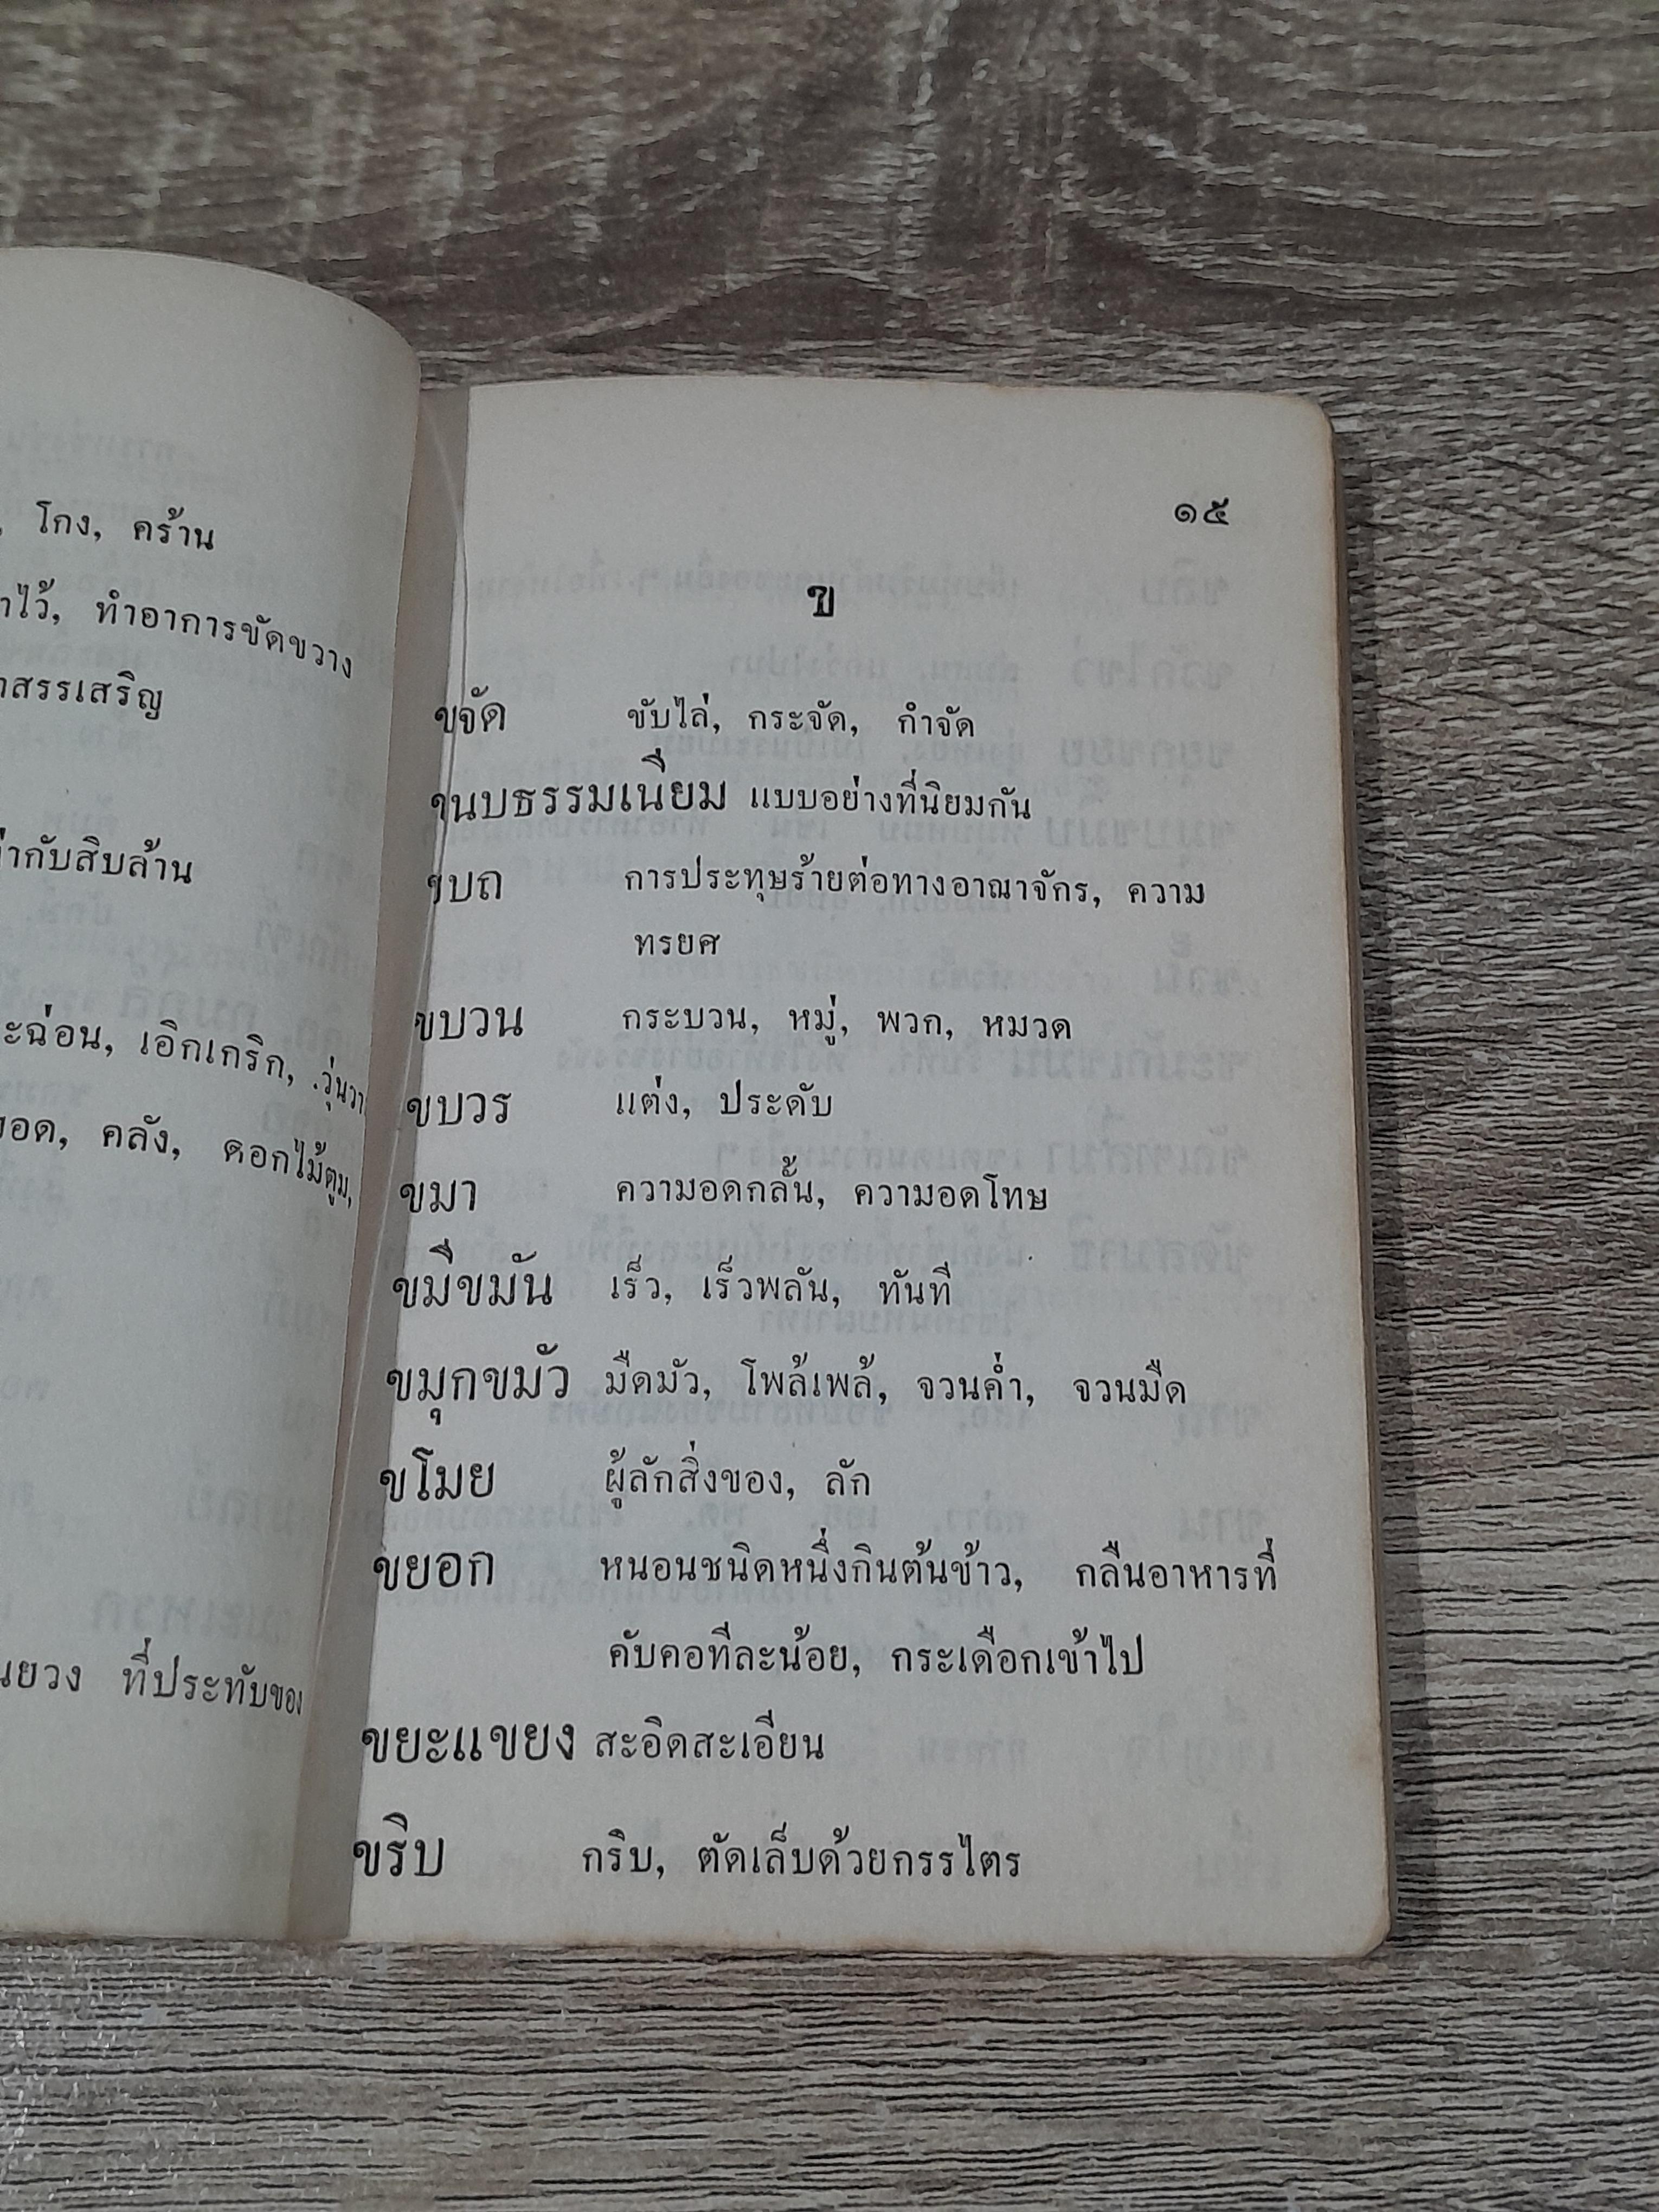 โกง, คร้าน
ทำอาการขัดขวาง
สรรเสริญ
กับสิบล้าน
ะฉ่อน, เอิกเกริก, วุ่นวา
ยอด, คลัง, ดอกไม้ตูม,
ที่ประทับของ
๑๕
ข
ขจัด ขับไล่, กระจัด, กำจัด
ขนบธรรมเนียม แบบอย่างที่นิยมกัน
ขบถ การประทุษร้ายต่อทางอาณาจักร, ความ
ทรยศ
ขบวน กระบวน, หมู่, พวก, หมวด
ขบวร แต่ง, ประดับ
ขมา ความอดกลั้น, ความอดโทษ
ขมีขมัน เร็ว, เร็วพลัน, ทันที
ขมุกขมัว มืดมัว, โพล้เพล้, จวนค่ำ, จวนมืด
ขโมย ผู้ลักสิ่งของ, ลัก
ขยอก หนอนชนิดหนึ่งกินต้นข้าว, กลืนอาหารที่
คับคอทีละน้อย, กระเดือกเข้าไป
ขยะแขยง สะอิดสะเอียน
ขริบ กริบ, ตัดเล็บด้วยกรรไตร